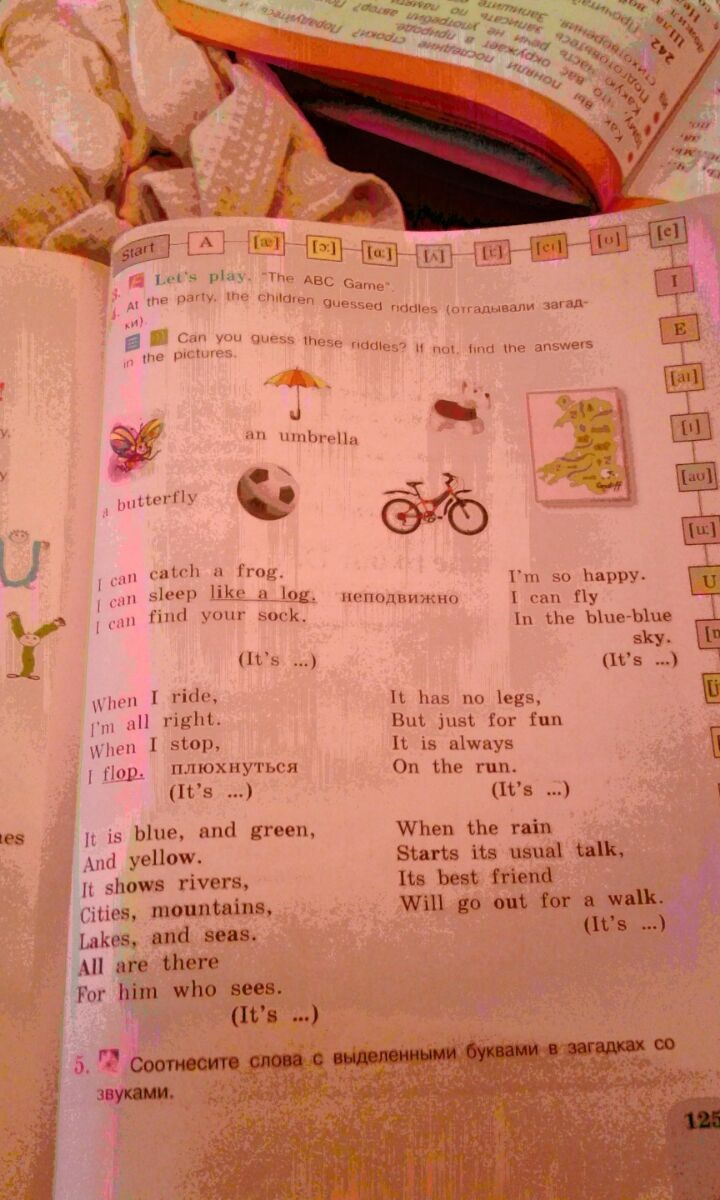 Start A [æ] [ɔ:] [ɑ:] [ʌ] [i:] [eɪ] [ʊ] [e]
I
E
[aɪ]
[ɪ]
[aʊ]
[u:]
U
3. Let's play. "The ABC Game".
4. At the party, the children guessed riddles (отгадывали загад-
ки).
Can you guess these riddles? If not, find the answers
in the pictures.
an umbrella
a butterfly
Cardiff
I can catch a frog.
I can sleep like a log. неподвижно
I can find your sock.
(It's ...)
I'm so happy.
I can fly
In the blue-blue
sky.
(It's ...)
When I ride,
I'm all right.
When I stop,
I flop. плюхнуться
(It's ...)
It has no legs,
But just for fun
It is always
On the run.
(It's ...)
It is blue, and green,
And yellow.
It shows rivers,
Cities, mountains,
Lakes, and seas.
All are there
For him who sees.
(It's ...)
When the rain
Starts its usual talk,
Its best friend
Will go out for a walk.
(It's ...)
5. Соотнесите слова с выделенными буквами в загадках со
звуками.
125